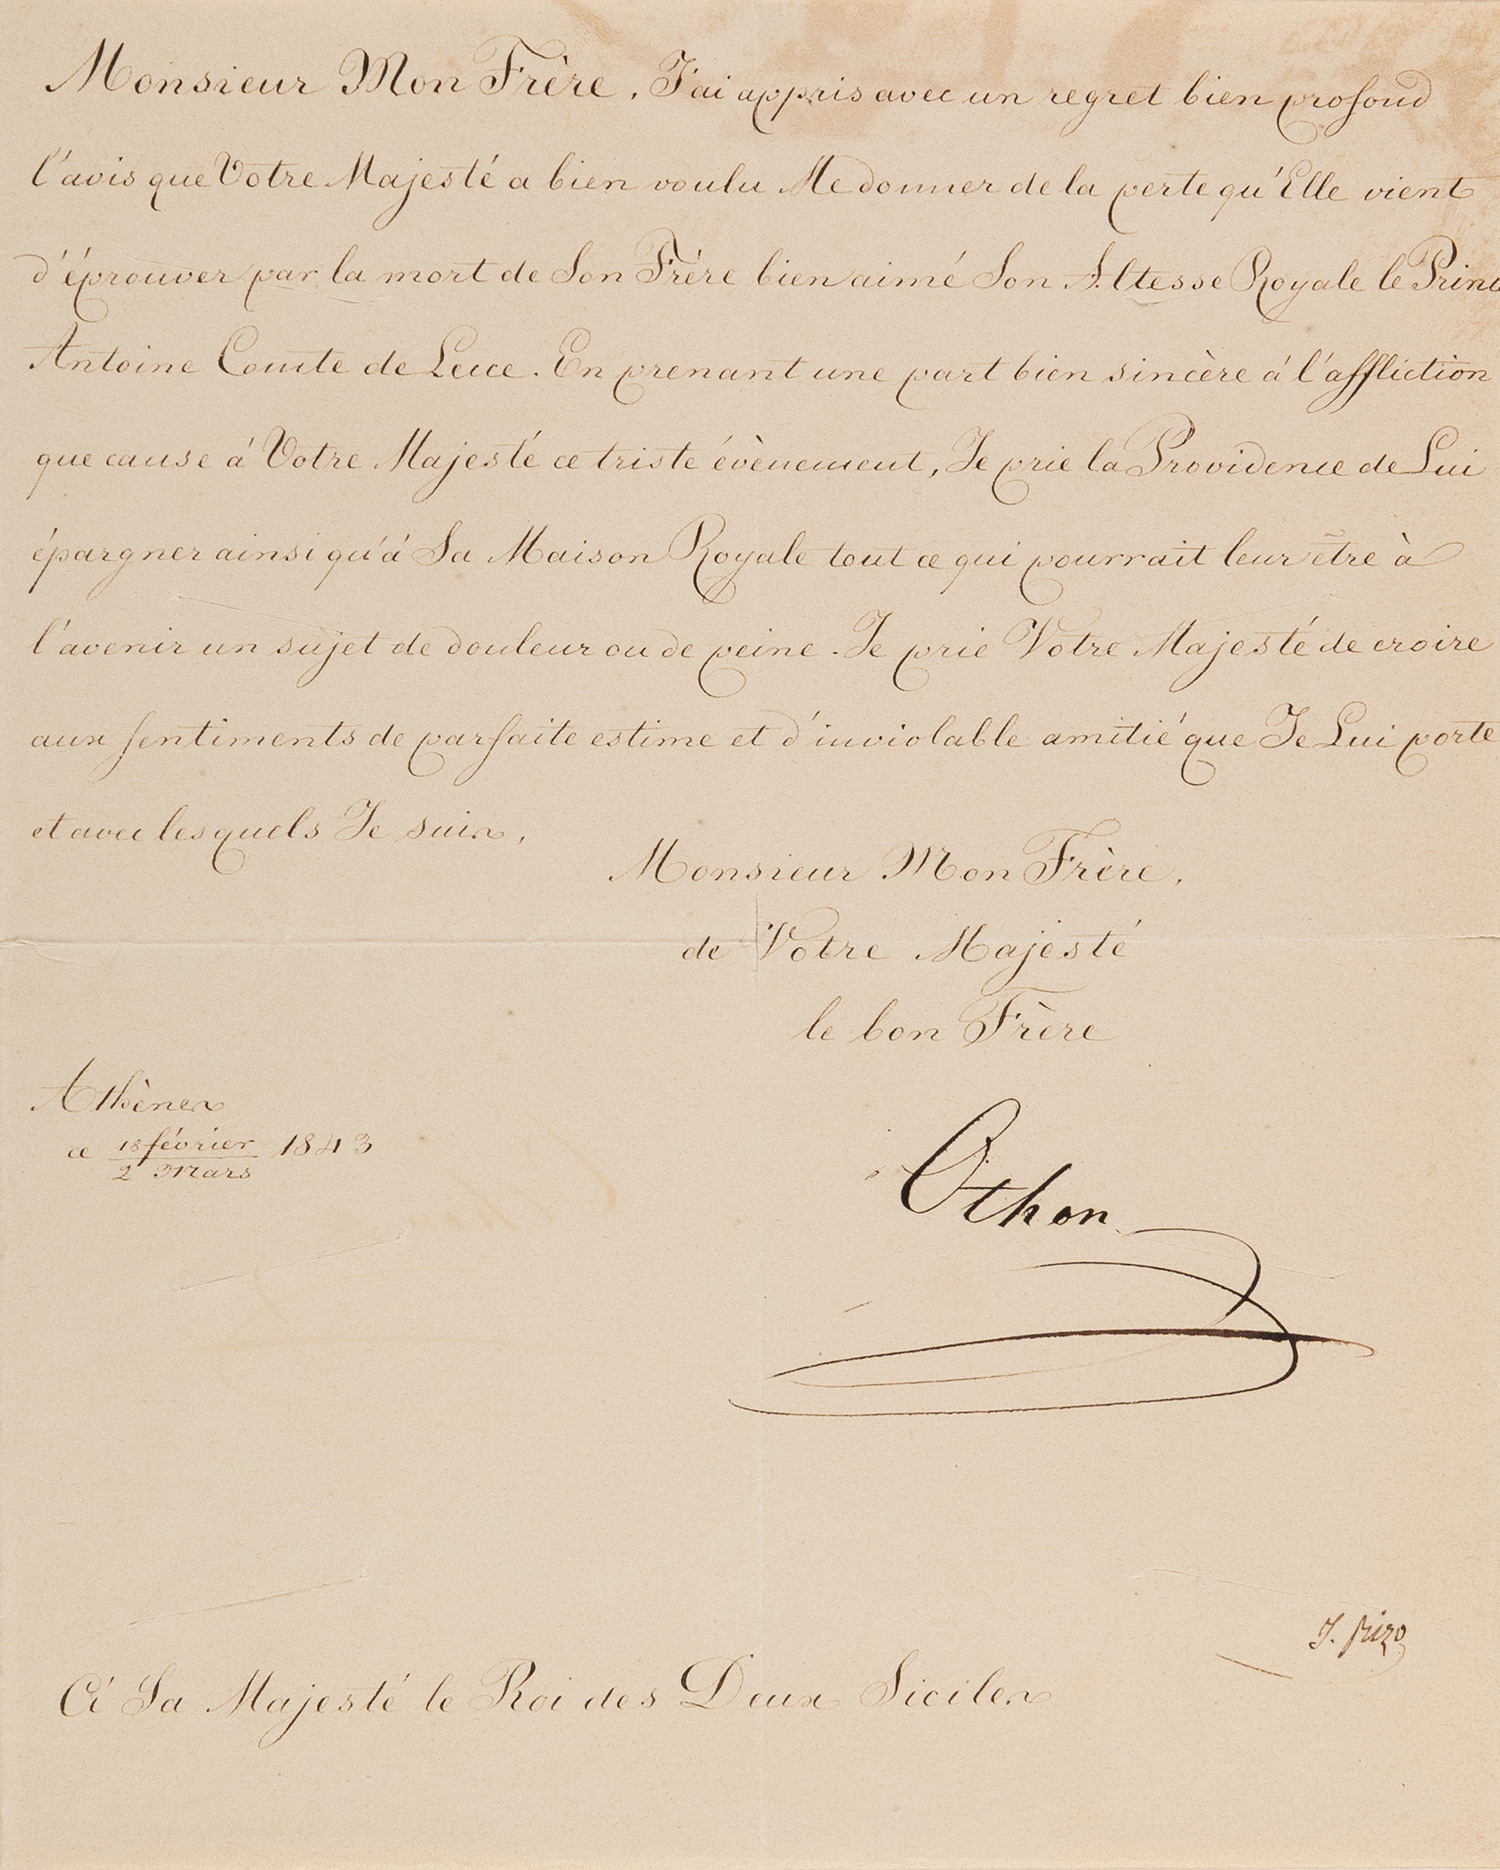 Monsieur Mon Frère, J'ai appris avec un regret bien profond
l'avis que Votre Majesté a bien voulu Me donner de la perte qu'Elle vient
d'éprouver par la mort de Son Frère bien aimé Son Altesse Royale le Prince
Antoine Comte de Lecce. En prenant une part bien sincère á l'affliction
que cause á Votre Majesté ce triste évènement, Je prie la Providence de Lui
épargner ainsi qu'á Sa Maison Royale tout ce qui pourrait leur être à
l'avenir un sujet de douleur ou de peine. Je prie Votre Majesté de croire
aux sentiments de parfaite estime et d'inviolable amitié que Je Lui porte
et avec lesquels Je suis,
Monsieur Mon Frère,
de Votre Majesté
le bon Frère
Athènes
ce 18 février 1843
2 Mars
Othon
J. Rizo
A Sa Majesté le Roi des Deux Siciles